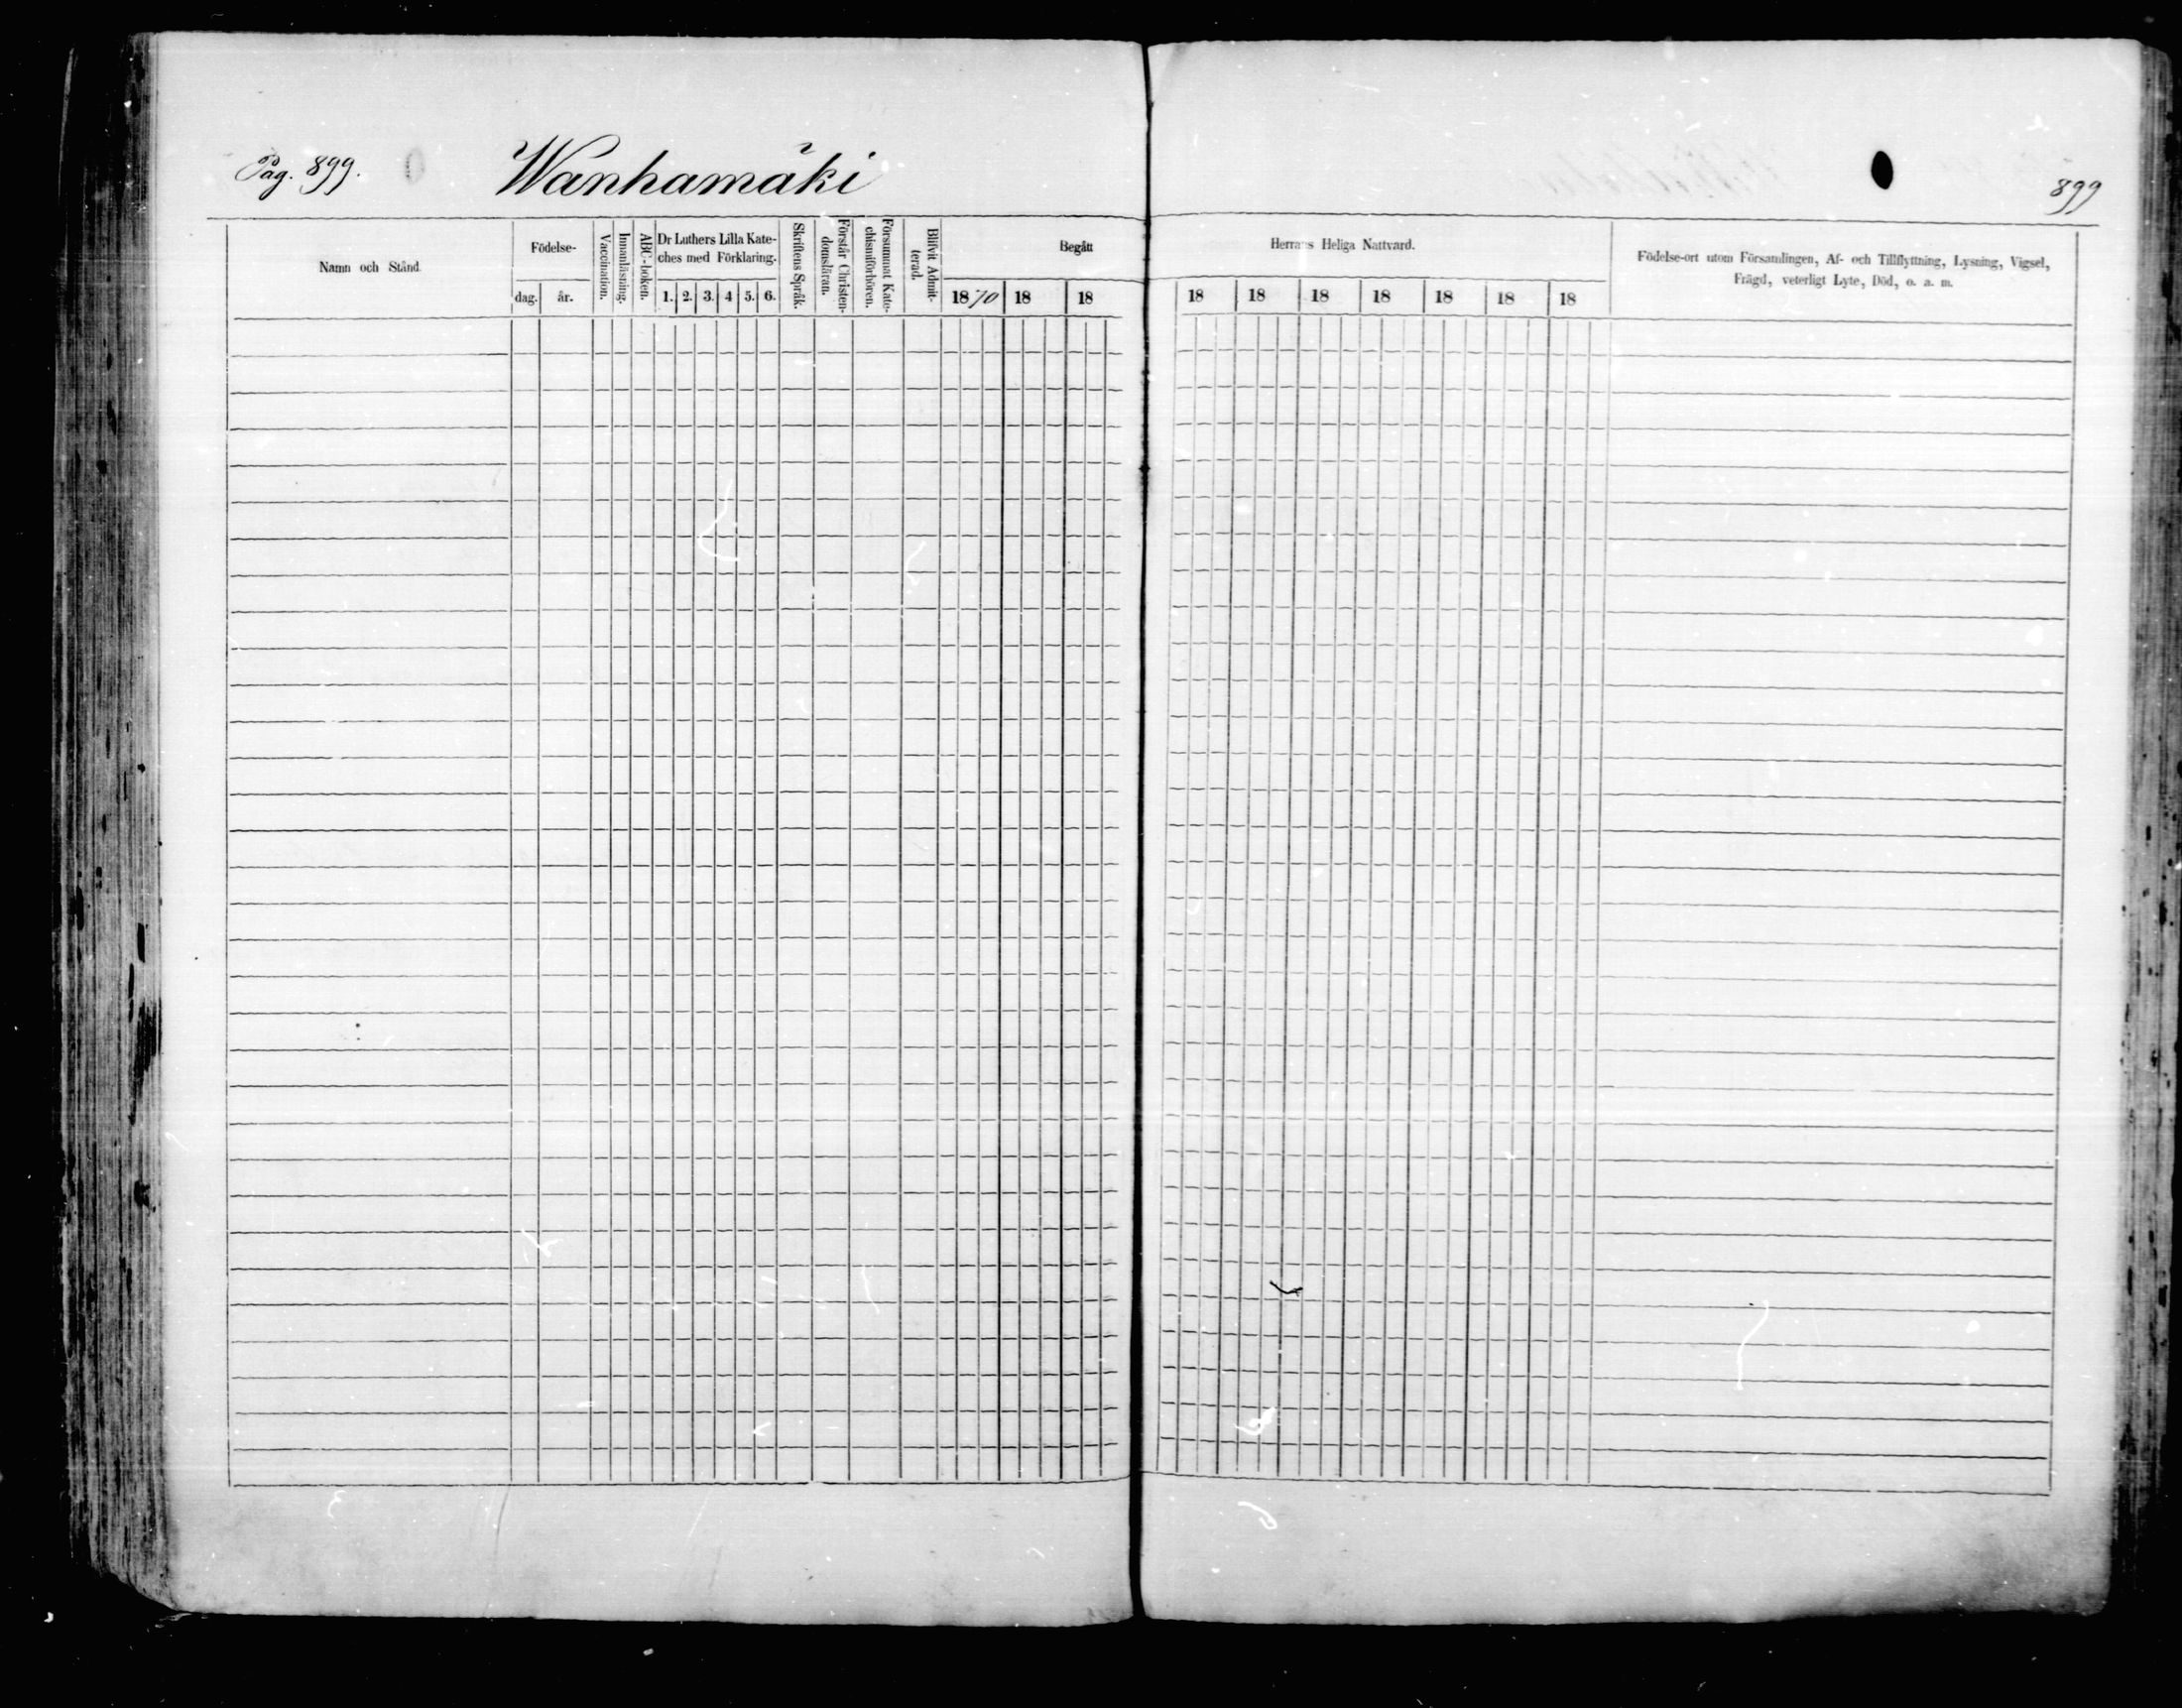 Pag. 899.
Wanhamäki
899
Namn och Stånd
Födelse-
dag.
år.
Vaccination.
Innanläsning.
ABC-boken.
Dr Luthers Lilla Kate-
ches med Förklaring.
1. 2. 3. 4 5. 6.
Skriftens Språk.
Förstår Christen-
domsläran.
Försummat Kate-
chismiförhören.
Blifvit Admit-
terad.
Begått
1870 18 18
Herrans Heliga Nattvard.
18 18 18 18 18 18 18
Födelse-ort utom Församlingen, Af- och Tillflyttning, Lysning, Vigsel,
Frägd, veterligt Lyte, Död, o. a. m.